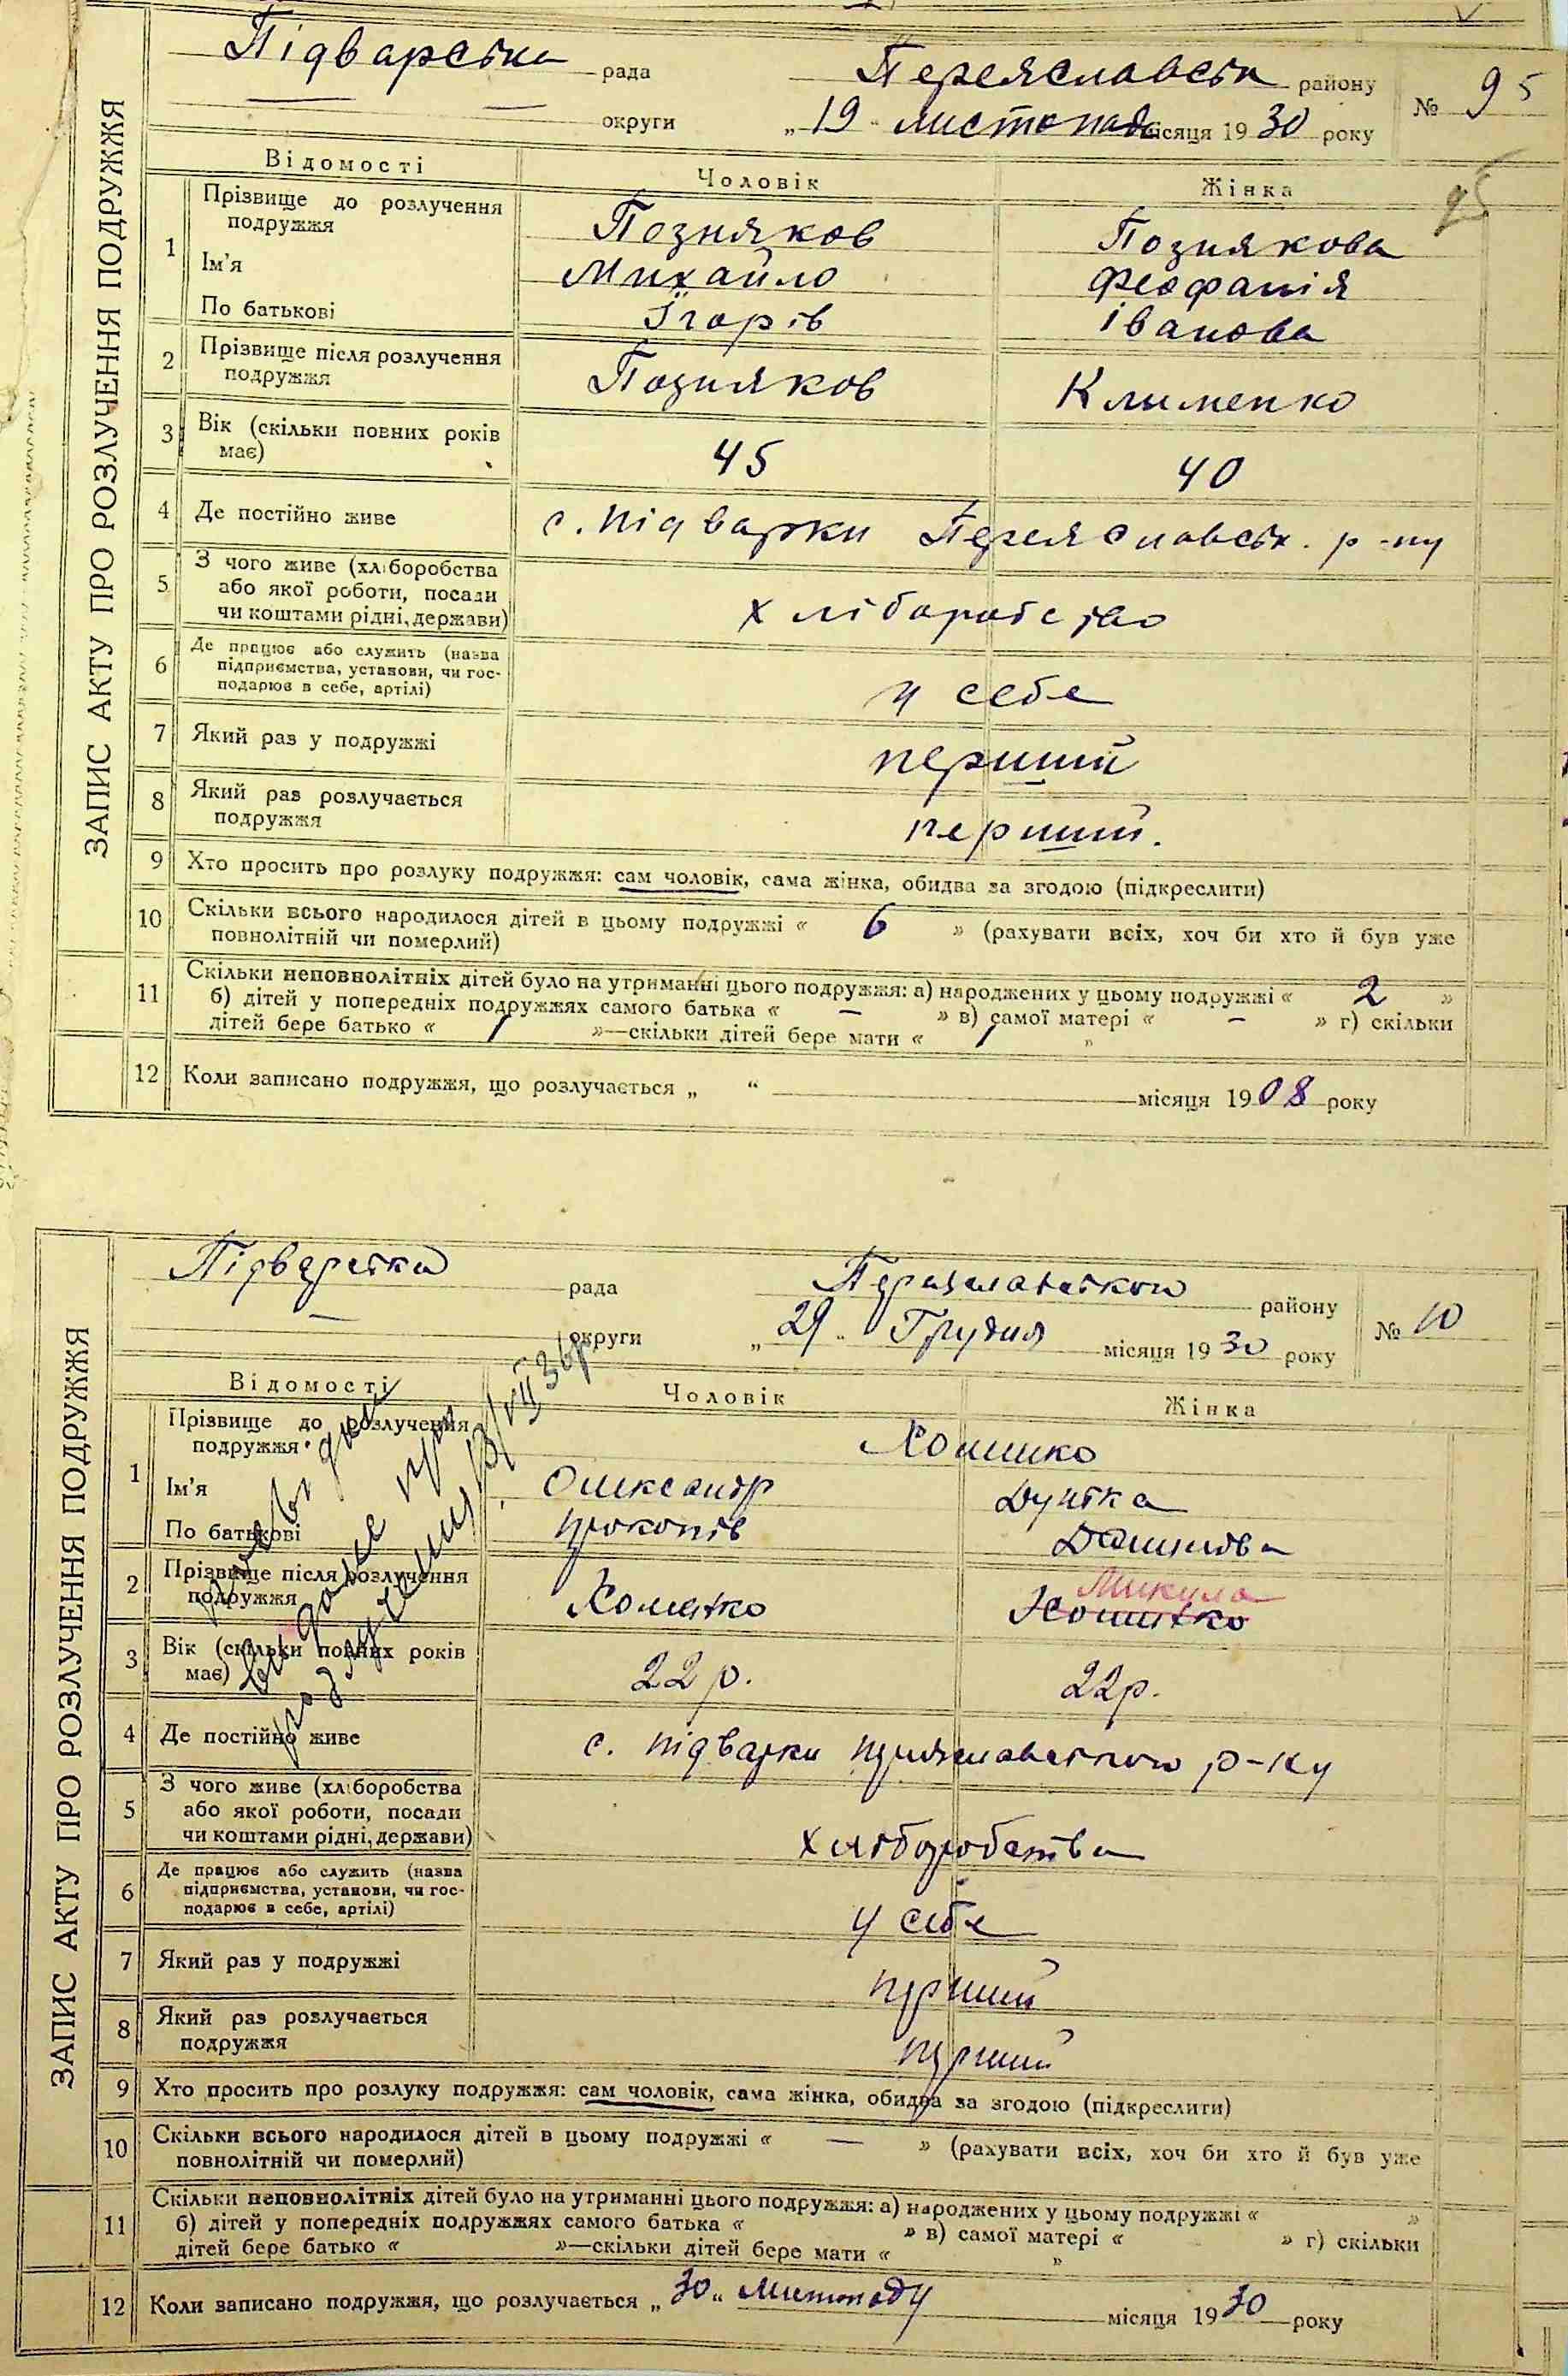 Підварська рада Переяславськ району № 95
округи „19" листопада місяця 1930 року
95
ЗАПИС АКТУ ПРО РОЗЛУЧЕННЯ ПОДРУЖЖЯ
Відомості Чоловік Жінка
1 Прізвище до розлучення подружжя Позняков Познякова
Ім'я Михайло Феофанія
По батькові Ігорів Іванова
2 Прізвище після розлучення
подружжя Позняков Клименко
3 Вік (скільки повних років
має) 45 40
4 Де постійно живе с. Підварки Переяславськ. р-ну
5 З чого живе (хліборобства
або якої роботи, посади
чи коштами рідні, держави) хліборобство
6 Де працює або служить (назва
підприємства, установи, чи гос-
подарює в себе, артілі) у себе
7 Який раз у подружжі перший
8 Який раз розлучається
подружжя перший.
9 Хто просить про розлуку подружжя: сам чоловік, сама жінка, обидва за згодою (підкреслити)
10 Скільки всього народилося дітей в цьому подружжі « 6 » (рахувати всіх, хоч би хто й був уже
повнолітній чи померлий)
11 Скільки неповнолітніх дітей було на утриманні цього подружжя: а) народжених у цьому подружжі « 2 »
б) дітей у попередніх подружжях самого батька « — » в) самої матері « — » г) скільки
дітей бере батько « 1 »—скільки дітей бере мати « 1 »
12 Коли записано подружжя, що розлучається „ " місяця 1908 року
Підварська рада Переяславського району № 10
округи „29" Грудня місяця 1930 року
ЗАПИС АКТУ ПРО РОЗЛУЧЕННЯ ПОДРУЖЖЯ
Відомості Чоловік Жінка
1 Прізвище до розлучення
подружжя Хоменко
Ім'я Олександр Дунька
По батькові Прокопів Данилова
2 Прізвище після розлучення
подружжя Хоменко Микула Хоменко
3 Вік (скільки повних років
має) 22 р. 22р.
4 Де постійно живе с. Підварки Переяславського р-ну
5 З чого живе (хліборобства
або якої роботи, посади
чи коштами рідні, держави) хліборобства
6 Де працює або служить (назва
підприємства, установи, чи гос-
подарює в себе, артілі) у себе
7 Який раз у подружжі перший
8 Який раз розлучається
подружжя перший
9 Хто просить про розлуку подружжя: сам чоловік, сама жінка, обидва за згодою (підкреслити)
10 Скільки всього народилося дітей в цьому подружжі « — » (рахувати всіх, хоч би хто й був уже
повнолітній чи померлий)
11 Скільки неповнолітніх дітей було на утриманні цього подружжя: а) народжених у цьому подружжі « »
б) дітей у попередніх подружжях самого батька « » в) самої матері « » г) скільки
дітей бере батько « »—скільки дітей бере мати « »
12 Коли записано подружжя, що розлучається „30" листопаду місяця 1930 року